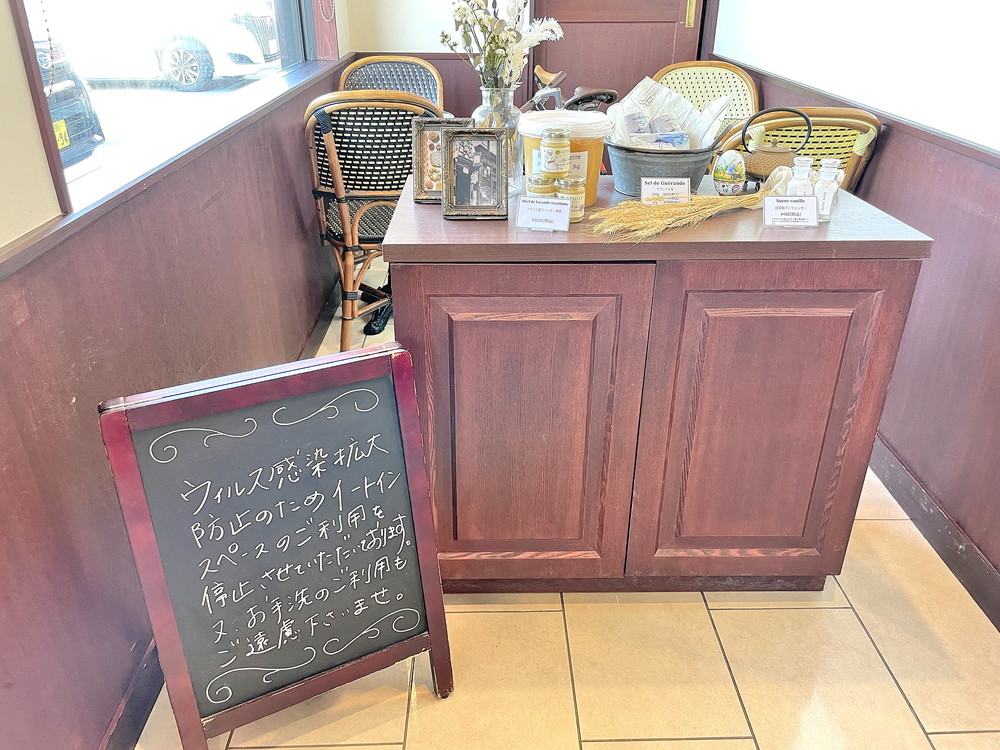 ウィルス感染拡大
防止のためイートイン
スペースのご利用を
停止させていただいております。
又、お手洗のご利用も
ご遠慮下さいませ。
Miel de lavande maritime
Sel de Guérande
Sucre vanille